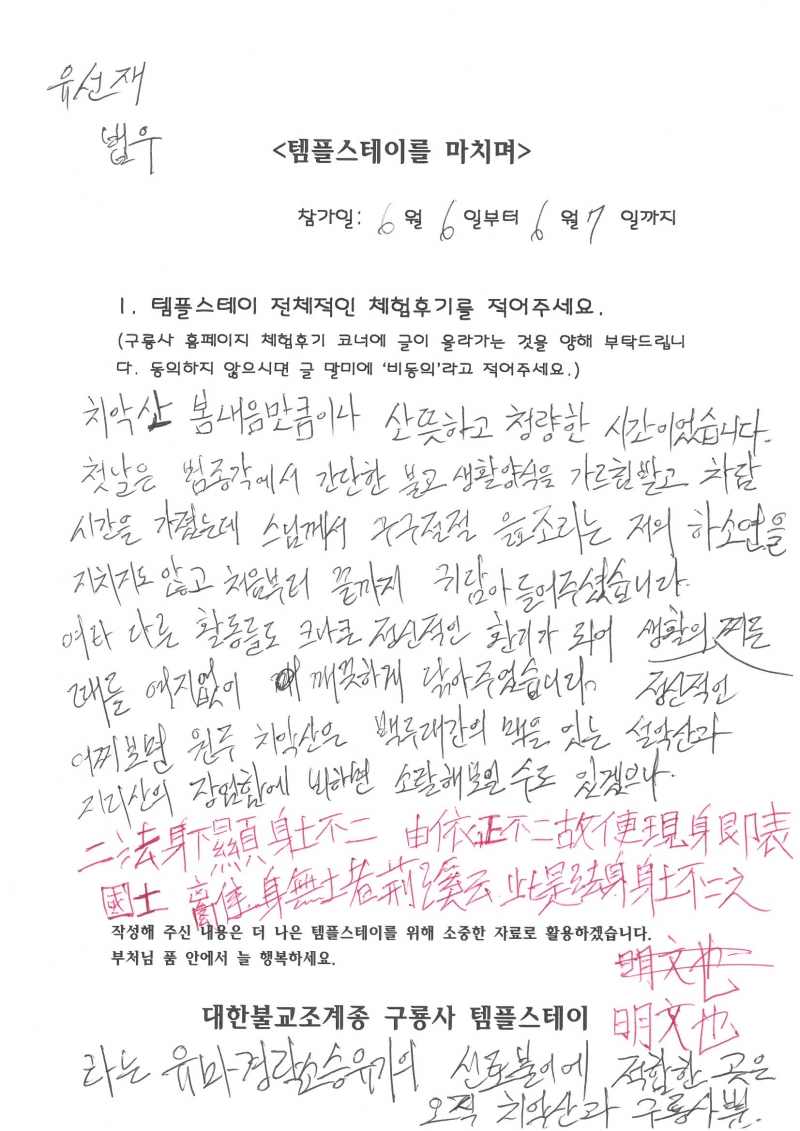 유선재
법우
<템플스테이를 마치며>
참가일: 6 월 6 일부터 6 월 7 일까지
1. 템플스테이 전체적인 체험후기를 적어주세요.
(구룡사 홈페이지 체험후기 코너에 글이 올라가는 것을 양해 부탁드립니
다. 동의하지 않으시면 글 말미에 '비동의'라고 적어주세요.)
치악산 봄내음만큼이나 산뜻하고 청량한 시간이었습니다.
첫날은 범종각에서 간단한 불교 생활양식을 가르침받고 차담
시간을 가졌는데 스님께서 구구절절 읊조리는 저의 하소연을
지치지도 않고 처음부터 끝까지 귀담아 들어주셨습니다.
여타 다른 활동들도 크나큰 정신적인 환기가 되어 생활의 찌든
때를 여지없이 깨끗하게 닦아주었습니다. 정신적인
어찌보면 원주 치악산은 백두대간의 맥을 잇는 설악산과
지리산의 장엄함에 비하면 소탈해보일 수도 있겠으나.
二法身下顯身土不二 由依正不二故便現身即表
國土 離身無土者荊溪云 此是法身身土不二之
작성해 주신 내용은 더 나은 템플스테이를 위해 소중한 자료로 활용하겠습니다.
부처님 품 안에서 늘 행복하세요.
明文也
明文也
대한불교조계종 구룡사 템플스테이
라는 유마경략소승유기의 신토불이에 적합한 곳은
오직 치악산과 구룡사뿐.